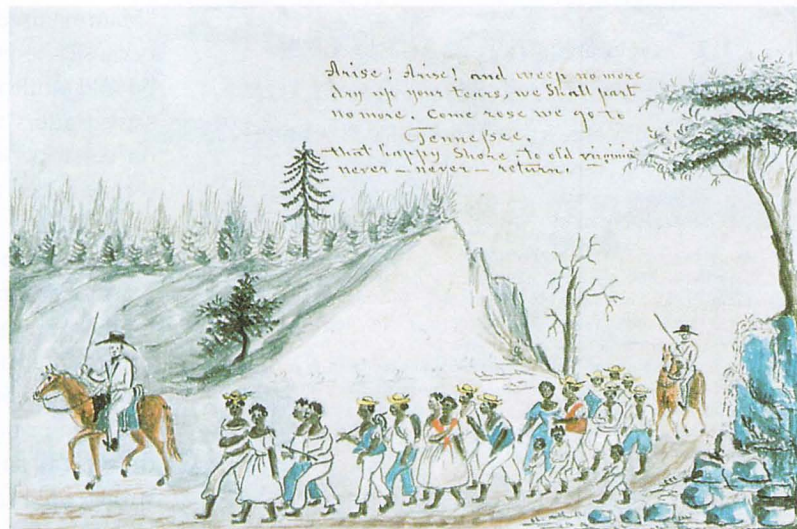 Arise! Arise! and weep no more
dry up your tears, we Shall part
no more. Come rose we go to
Tenneſsee.
that happy Shore. to old virginia
never — never — return.